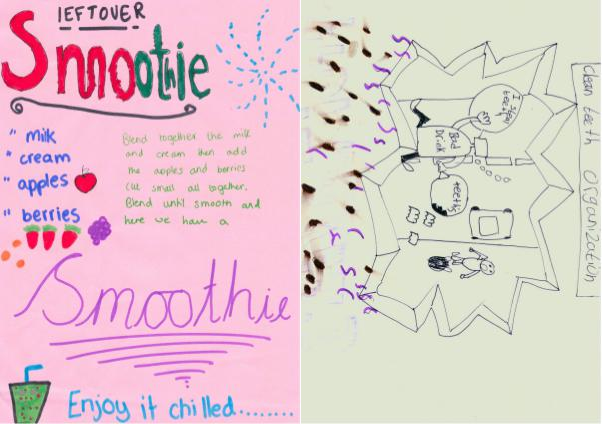 LEFTOVER
Smoothie
" milk
" cream
" apples
" berries
Blend together the milk
and cream then add
the apples and berries
Cut small all together.
Blend until smooth and
here we have a
Smoothie
Enjoy it chilled........
clean teeth organization
I steal
teeth
Bad
Drink
teeths